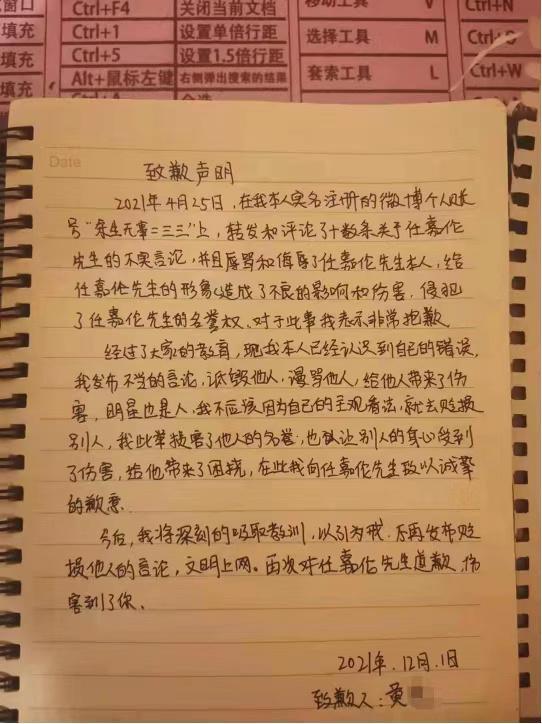 窗口
Ctrl+F4
关闭当前文档
移动工具
V
Ctrl+N
填充
Ctrl+1
设置单倍行距
选择工具
M
填充
Ctrl+5
设置1.5倍行距
填充
Alt+鼠标左键
右侧弹出搜索的结果
套索工具
L
Ctrl+W
Date
致歉声明
2021年4月25日,在我本人实名注册的微博个人账
号“余生无事=三三”上,转发和评论了十数条关于任嘉伦
先生的不实言论,并且辱骂和侮辱了任嘉伦先生本人,给
任嘉伦先生的形象造成了不良的影响和伤害,侵犯
了任嘉伦先生的名誉权,对于此事我表示非常抱歉。
经过了大家的教育,现我本人已经认识到自己的错误,
我发布不当的言论,诋毁他人,谩骂他人,给他人带来了伤
害,明星也是人,我不应该因为自己的主观看法,就去贬损
别人,我此举损害了他人的名誉,也让别人的身心受到
了伤害,给他带来了困扰,在此我向任嘉伦先生致以诚挚
的歉意。
今后,我将深刻的吸取教训,以引为戒,不再发布贬
损他人的言论,文明上网。再次对任嘉伦先生道歉,伤
害到了你、
2021年.12月.1日
致歉人:黄